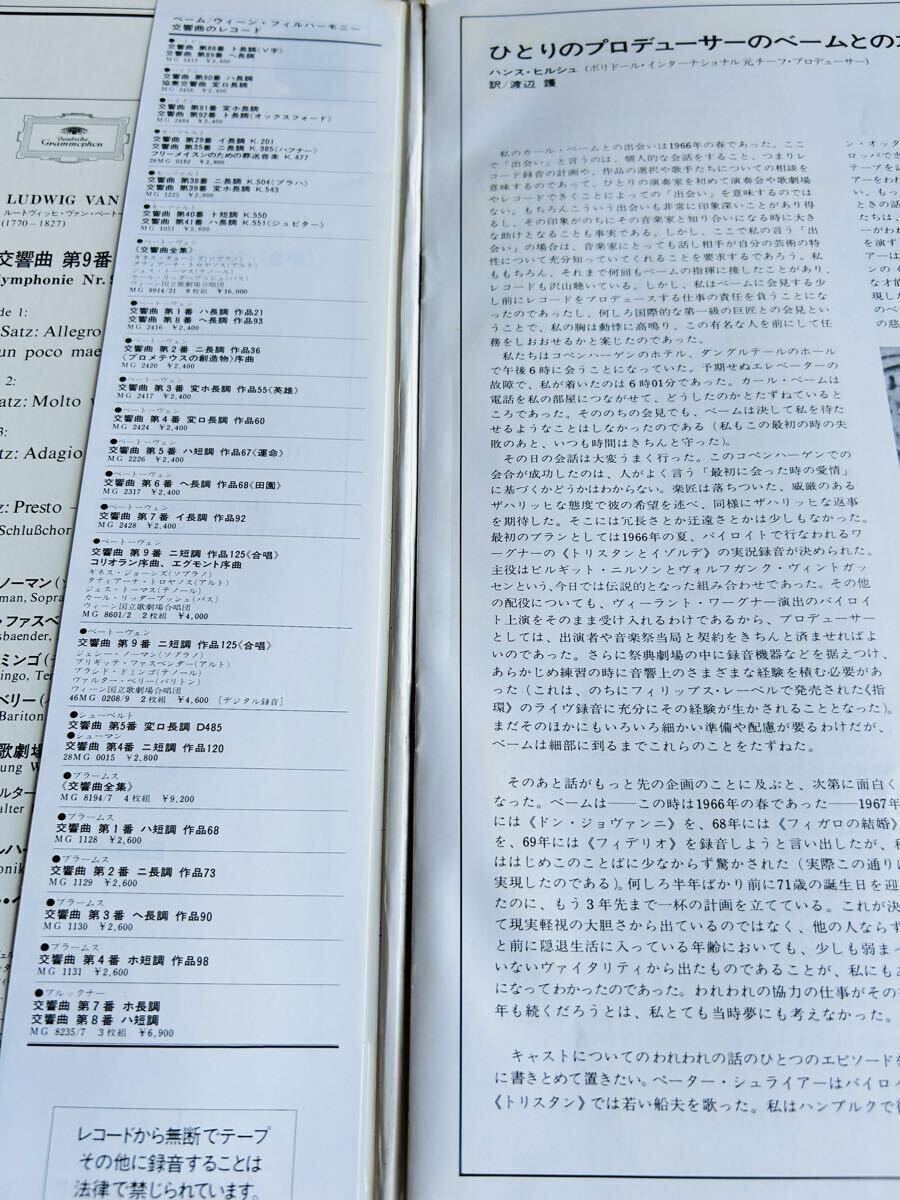 Deutsche
Grammophon
LUDWIG VAN
ルートヴィッヒ・ヴァン・ベートー
(1770–1827)
交響曲 第9番
Symphonie Nr.
Side 1:
Satz: Allegro
un poco mae
2:
Satz: Molto
3:
Satz: Adagio
Presto –
Schlußchor
ノーマン
man, Sopra
・ファスベ
sbaender,
ミンゴ
ingo, Te
ベリー
Bariton
歌劇場
ベーム/ウィーン・フィルハーモニー
交響曲のレコード
●ハイドン
交響曲 第88番 ト長調(V字)
交響曲 第89番 ヘ長調
MG 2413 ¥2,400
●ハイドン
交響曲 第90番 ハ長調
協奏交響曲 変ロ長調
MG 2456 ¥2,400
●ハイドン
交響曲 第91番 変ホ長調
交響曲 第92番 ト長調(オックスフォード)
MG 2484 ¥2,400
●モーツァルト
交響曲 第29番 イ長調 K.201
交響曲 第35番 ニ長調 K.385(ハフナー)
フリーメイスンのための葬送音楽 K.477
28MG 0182 ¥2,800
●モーツァルト
交響曲 第38番 ニ長調 K.504(プラハ)
交響曲 第39番 変ホ長調 K.543
MG 1225 ¥2,600
●モーツァルト
交響曲 第40番 ト短調 K.550
交響曲 第41番 ハ長調 K.551(ジュピター)
MG 1051 ¥2,600
●ベートーヴェン
《交響曲全集》
ギネス・ジョーンズ(ソプラノ)
タティアーナ・トロヤノス(アルト)
ジェス・トーマス(テノール)
カール・リッダーブッシュ(バス)
ウィーン国立歌劇場合唱団
MG 8914/21 8枚組 ¥16,000
●ベートーヴェン
交響曲 第1番 ハ長調 作品21
交響曲 第8番 ヘ長調 作品93
MG 2416 ¥2,400
●ベートーヴェン
交響曲 第2番 ニ長調 作品36
《プロメテウスの創造物》序曲
MG 2420 ¥2,400
●ベートーヴェン
交響曲 第3番 変ホ長調 作品55《英雄》
MG 2417 ¥2,400
●ベートーヴェン
交響曲 第4番 変ロ長調 作品60
MG 2424 ¥2,400
●ベートーヴェン
交響曲 第5番 ハ短調 作品67《運命》
MG 2226 ¥2,400
●ベートーヴェン
交響曲 第6番 ヘ長調 作品68《田園》
MG 2317 ¥2,400
●ベートーヴェン
交響曲 第7番 イ長調 作品92
MG 2428 ¥2,400
●ベートーヴェン
交響曲 第9番 ニ短調 作品125《合唱》
コリオラン序曲、エグモント序曲
ギネス・ジョーンズ(ソプラノ)
タティアーナ・トロヤノス(アルト)
ジェス・トーマス(テノール)
カール・リッダーブッシュ(バス)
ウィーン国立歌劇場合唱団
MG 8601/2 2枚組 ¥4,000
●ベートーヴェン
交響曲 第9番 ニ短調 作品125《合唱》
ジェシー・ノーマン(ソプラノ)
ブリギッテ・ファスベンダー(アルト)
プラシド・ドミンゴ(テノール)
ヴァルター・ベリー(バリトン)
ウィーン国立歌劇場合唱団
46MG 0208/9 2枚組 ¥4,600 [デジタル録音]
●シューベルト
交響曲 第5番 変ロ長調 D485
●シューマン
交響曲 第4番 ニ短調 作品120
28MG 0015 ¥2,800
●ブラームス
《交響曲全集》
MG 8194/7 4枚組 ¥9,200
●ブラームス
交響曲 第1番 ハ短調 作品68
MG 1128 ¥2,600
●ブラームス
交響曲 第2番 ニ長調 作品73
MG 1129 ¥2,600
●ブラームス
交響曲 第3番 ヘ長調 作品90
MG 1130 ¥2,600
●ブラームス
交響曲 第4番 ホ短調 作品98
MG 1131 ¥2,600
●ブルックナー
交響曲 第7番 ホ長調
交響曲 第8番 ハ短調
MG 8235/7 3枚組 ¥6,900
レコードから無断でテープ
その他に録音することは
法律で禁じられています。
ひとりのプロデューサーのベームとの
ハンス・ヒルシュ (ポリドール・インターナショナル 元チーフ・プロデューサー)
訳/渡辺 護
私のカール・ベームとの出会いは1966年の春であった。ここ
で「出会い」と言うのは、個人的な会話をすること、つまりレ
コード録音の計画や、作品の選択や歌手たちについての相談を
意味するのであって、ひとりの演奏家を初めて演奏会や歌劇場
やレコードできくことによっての「出会い」を意味するのでは
ない。もちろんこういう出会いも非常に印象深いことがあり得
るし、その印象がのちにその音楽家と知り合いになる時に大き
な助けとなることも事実である。しかし、ここで私の言う「出
会い」の場合は、音楽家にとっても話し相手が自分の芸術の特
性について充分知っていてくれることを要求するであろう。私
ももちろん、それまで何回もベームの指揮に接したことがあり、
レコードも沢山聴いている。しかし、私はベームに会見する少
し前にレコードをプロデュースする仕事の責任を負うことにな
ったのであったし、何しろ国際的な第一級の巨匠との会見とい
うことで、私の胸は動悸に高鳴り、この有名な人を前にして任
務をしおおせるかと案じたのであった。
私たちはコペンハーゲンのホテル、ダングルテールのホール
で午後6時に会うことになっていた。予期せぬエレベーターの
故障で、私が着いたのは6時01分であった。カール・ベームは
電話を私の部屋につながせて、どうしたのかとたずねているとこ
ろであった。そののちの会見でも、ベームは決して私を待た
せるようなことはしなかったのである(私もこの最初の時の失
敗のあと、いつも時間はきちんと守った)。
その日の会話は大変うまく行った。このコペンハーゲンでの
会合が成功したのは、人がよく言う「最初に会った時の愛情」
に基づくかどうかはわからない。楽匠は落ちついた、威厳のある
ザハリッヒな態度で彼の希望を述べ、同様にザハリッヒな返事
を期待した。そこには冗長さとか迂遠さとかは少しもなかった。
最初のプランとしては1966年の夏、バイロイトで行なわれるワ
ーグナーの《トリスタンとイゾルデ》の実況録音が決められた。
主役はビルギット・ニルソンとヴォルフガンク・ヴィントガッ
センという、今日では伝説的となった組み合わせであった。その他
の配役についても、ヴィーラント・ワーグナー演出のバイロイ
ト上演をそのまま受け入れるわけであるから、プロデューサー
としては、出演者や音楽祭当局と契約をきちんと済ませればよ
いのであった。さらに祭典劇場の中に録音機器などを据えつけ、
あらかじめ練習の時に音響上のさまざまな経験を積む必要があ
った(これは、のちにフィリップス・レーベルで発売された《指
環》のライヴ録音に充分にその経験が生かされることとなった)。
まだそのほかにもいろいろ細かい準備や配慮が要るわけだが、
ベームは細部に到るまでこれらのことをたずねた。
そのあと話がもっと先の企画のことに及ぶと、次第に面白く
なった。ベームは——この時は1966年の春であった——1967年
には《ドン・ジョヴァンニ》を、68年には《フィガロの結婚》
を、69年には《フィデリオ》を録音しようと言い出したが、私
ははじめこのことばに少なからず驚かされた(実際この通りに
実現したのである)。何しろ半年ばかり前に71歳の誕生日を迎
たのに、もう3年先まで一杯の計画を立てている。これが決
て現実軽視の大胆さから出ているのではなく、他の人ならず
と前に隠退生活に入っている年齢においても、少しも弱まっ
いないヴァイタリティから出たものであることが、私にもあ
になってわかったのであった。われわれの協力の仕事がその
年も続くだろうとは、私とても当時夢にも考えなかった。
キャストについてのわれわれの話のひとつのエピソードを
に書きとめて置きたい。ペーター・シュライアーはバイロイ
《トリスタン》では若い船夫を歌った。私はハンブルクで